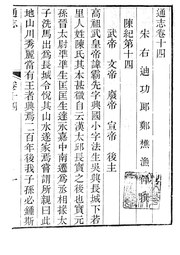 通志卷十四
宋右迪功郎鄭樵漁仲撰
陳紀第十四
武帝 文帝 廢帝 宣帝 後主
高祖武皇帝諱霸先字興國小字法生吳興長城下若
里人姓陳氏其本甚微自云漢太邱長寔之後也寔元
孫晉太尉準準生匡匡生達永嘉中南遷爲丞相掾太
子洗馬出爲長城令悅其山水遂家焉嘗謂所親曰此
地山川秀麗當有王者興焉二百年後我子孫必鍾斯